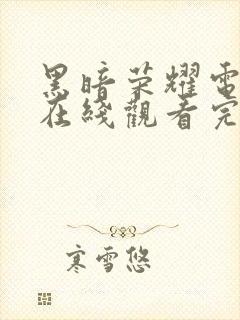 黑暗荣耀電
在綫觀看完
寒雪悠